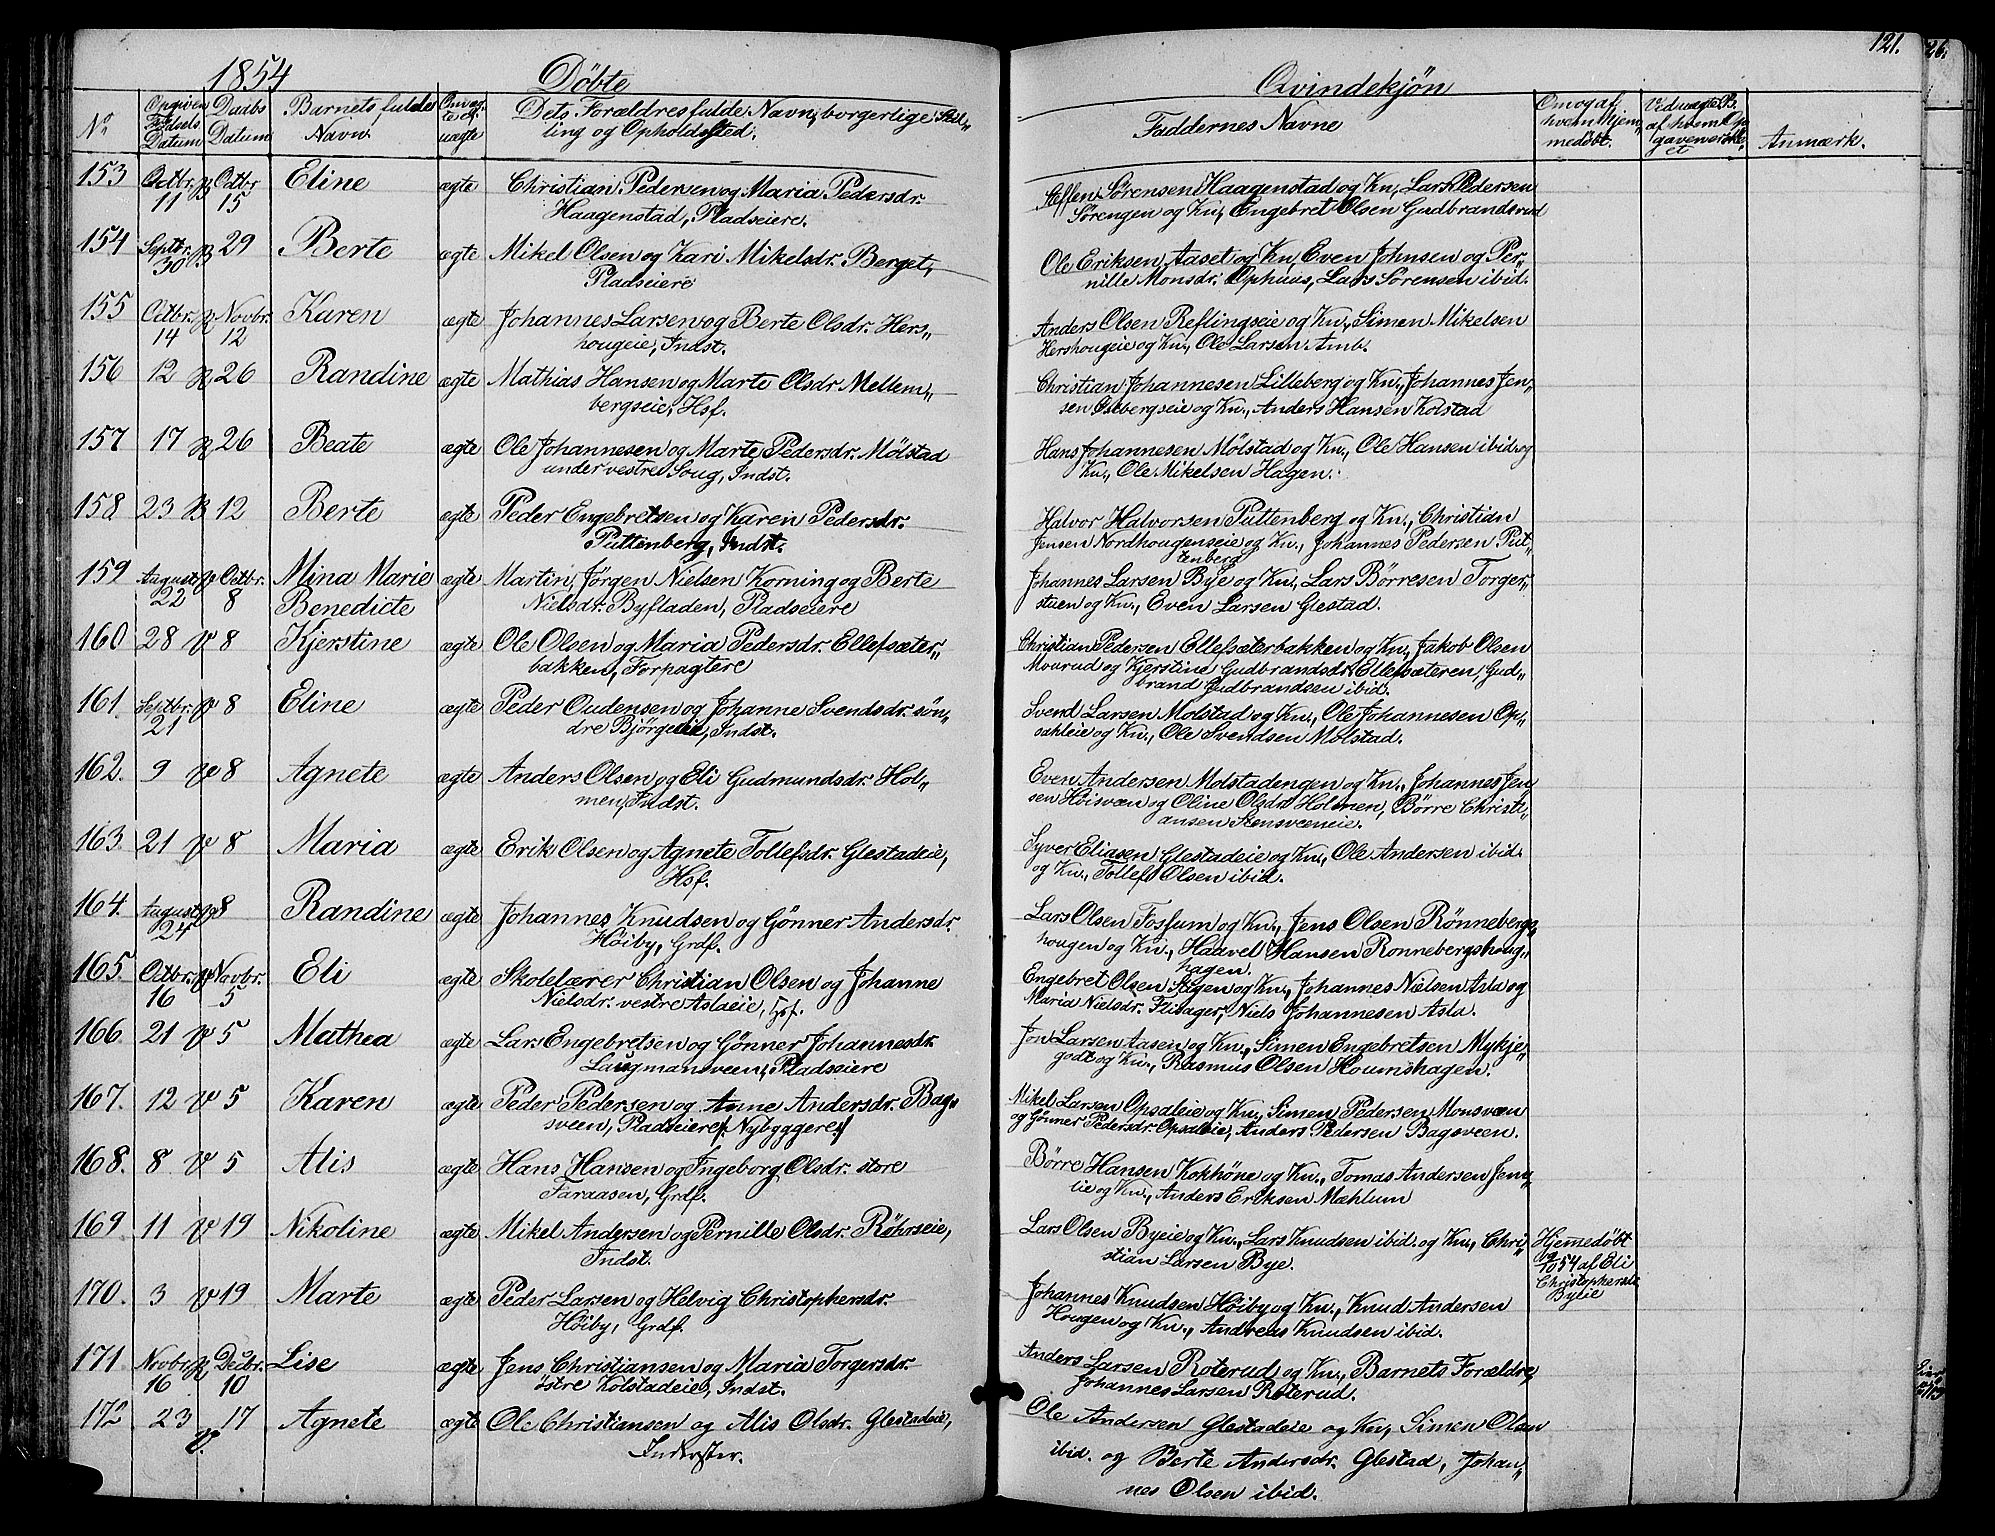 1854 Döbte
No. Opgiven Födsels Datum Daabs Datum Barnets fulde Navn Om ægte el. uægte Dets Forældres fulde Navn, borgerlige Stilling og Opholdssted.
153 Octbr. 11 Octbr 15 Eline ægte Christian Pedersen og Maria Pedersdr.
Haagenstad, Pladseiere.
154 Septbr. 30 29 Berte ægte Mikel Olsen og Kari Mikelsdr. Berget,
Pladseiere
155 Octbr. 14 Novbr. 12 Karen ægte Johannes Larsen og Berte Olsdr. Hers„
hougeie, Indst.
156 12 26 Randine ægte Mathias Hansen og Marte Olsdr. Mellem„
bergseie, Hsf.
157 17 26 Beate ægte Ole Johannesen og Marte Pedersdr. Mölstad
under vestre Soug, Indst.
158 23 12 Berte ægte Peder Engebretsen og Karen Pedersdr.
Puttenberg, Indst.
159 August 22 Octbr. 8 Mina Marie ægte Martin Jörgen Nielsen Korning og Berte
Benedicte Nielsdr. Byfladen, Pladseiere
160 28 8 Kjerstine ægte Ole Olsen og Maria Pedersdr. Ellefsæter„
bakken, Forpagtere
161. Septbr. 21 8 Eline ægte Peder Oudensen og Johanne Svendsdr. sön„
dre Bjørgeeie, Indst.
162. 9 8 Agnete ægte Anders Olsen og Eli Gudmundsdr. Hol„
men, Indst.
163. 21 8 Maria ægte Erik Olsen og Agnete Tollefsdr. Glestadeie,
Hsf.
164. August 24 8 Randine ægte Johannes Knudsen og Gönner Andersdr.
Höiby, Grdf.
165. Octbr. 16 Novbr. 5 Eli ægte Skolelærer Christian Olsen og Johanne
Nielsdr. vestre Aslaeie, Hsf.
166. 21 5 Mathea ægte Lars Engebretsen og Gönner Johannesdr.
Laugmansveen, Pladseiere
167. 12 5 Karen ægte Peder Pedersen og Anne Andersdr. Bags
sveen, Pladseiere (Nybyggere)
168. 8 5 Alis ægte Hans Hansen og Ingeborg Olsdr. store
Faraasen, Grdf.
169. 11 19 Nikoline ægte Mikel Andersen og Pernille Olsdr. Röhrseie,
Indst.
170. 3 19 Marte ægte Peder Larsen og Helvig Christophersdr.
Höiby, Grdf.
171 Novbr. 16 Decbr. 10 Lise ægte Jens Christiansen og Maria Torgersdr.
östre Kolstadeie, Indst.
172 23 17 Agnete ægte Ole Christiansen og Alis Olsdr. Glestadeie,
Inderster.
Qvindekjøn 121.
Faddernes Navne Om og af hvem hjemmedøbt. Anmærk.
Steffen Sörensen Haagenstad og Kn., Lars Pedersen
Sörengen og Kn., Engebret Olsen Gudbrandsrud
Ole Eriksen Aaset og Kn., Even Johnsen og Per„
nille Monsdr. Ophuus, Lars Sörensen ibid.
Anders Olsen Reflingseie og Kn., Simen Mikelsen
Hershougeie og Kn., Ole Larsen Amb.
Christian Johannesen Lilleberg og Kn., Johannes Jen„
sen Ostbergseie og Kn., Anders Hansen Kolstad
Hans Johannesen Mölstad og Kn., Ole Hansen ibid. og
Kn., Ole Mikelsen Hagen.
Halvor Halvorsen Puttenberg og Kn., Christian
Jensen Nordhougenseie og Kn., Johannes Pedersen Put„
tenberg
Johannes Larsen Bye og Kn., Lars Börresen Torger„
stuen og Kn., Even Larsen Glestad.
Christian Pedersen Ellefsæterbakken og Kn., Jakob Olsen
Mourud og Kjerstine Gudbrandsdr. Ellefsæteren, Gud„
brand Gudbrandsen ibid.
Svend Larsen Molstad og Kn., Ole Johannesen Op„
sahleie og Kn., Ole Svendsen Molstad.
Even Andersen Molstadengen og Kn., Johannes Jen„
sen Höisveen og Oline Olsdr. Holmen, Börre Christi„
ansen Stensveeneie.
Syver Eliasen Glestadeie og Kn., Ole Andersen ibid.
og Kn., Tollef Olsen ibid.
Lars Olsen Fossum og Kn., Jens Olsen Rönnebergs„
hougen og Kn., Haavel Hansen Ronnebergshoug„
hagen.
Engebret Olsen Stegen og Kn., Johannes Nielsen Asla og
Maria Nielsdr. Flisager, Niels Johannesen Asla.
Jon Larsen Aasen og Kn., Simen Engebretsen Mykje„
godt og Kn., Rasmus Olsen Houmshagen.
Mikel Larsen Opsaleie og Kn., Simen Pedersen Monsveen
og Gönner Pedersdr. Opsaleie, Anders Pedersen Bagsveen.
Börre Hansen Kokhöne og Kn., Tomas Andersen Jem„
lie og Kn., Anders Eriksen Mæhlum
Lars Olsen Byeie og Kn., Lars Knudsen ibid. og Kn., Chri„ Hjemmedöbt
stian Larsen Bye. 54 af Eli
Christophersdr.
Byeie
Johannes Knudsen Höiby og Kn., Knud Andersen
Hougen og Kn., Andreas Knudsen ibid.
Anders Larsen Roterud og Kn., Barnets Forældre,
Johannes Larsen Roterud.
Ole Andersen Glestadeie og Kn., Simen Olsen
ibid. og Berte Andersdr. Glestad, Johan„
nes Olsen ibid.